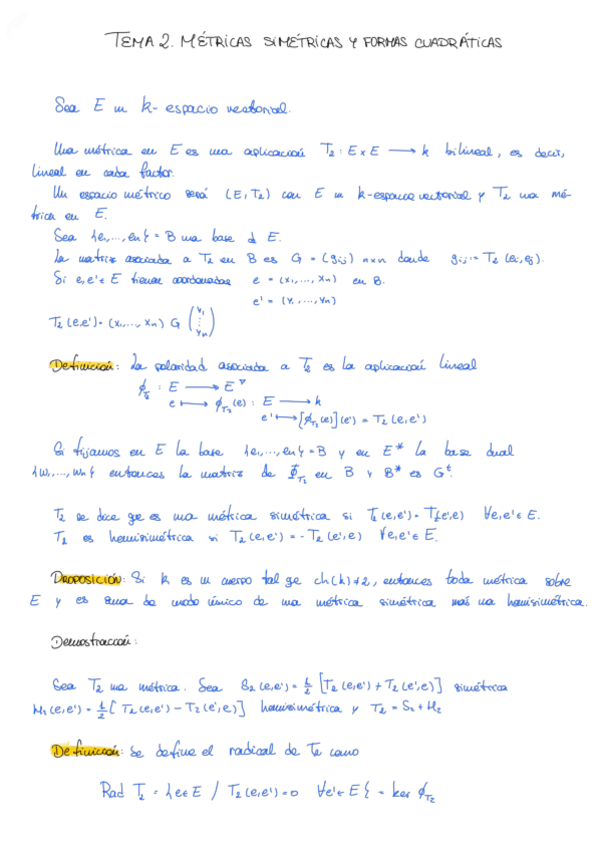 TEMA 2. MÉTRICAS SIMÉTRICAS Y FORMAS CUADRÁTICAS
Sea E un k-espacio vectorial.
Una métrica en E es una aplicación T₂: E×E → k bilineal, es decir,
lineal en cada factor.
Un espacio métrico será (E, T₂) con E un k-espacio vectorial y T₂ una mé-
trica en E.
Sea {e₁,...,eₙ} = B una base d E.
La matriz asociada a T₂ en B es G = (gᵢⱼ) n×n donde gᵢⱼ = T₂(eᵢ,eⱼ).
Si e,e'∈E tienen coordenadas e = (x₁,...,xₙ) en B.
e' = (y₁,...,yₙ)
T₂(e,e') = (x₁,...,xₙ) G (y₁ ⋮ yₙ)
Definición: La polaridad asociada a T₂ es la aplicación lineal
ϕ_T₂ : E → E*
e ↦ ϕ_T₂(e) : E → k
e' ↦ [ϕ_T₂(e)](e') = T₂(e,e')
Si fijamos en E la base {e₁,...,eₙ} = B y en E* la base dual
{w₁,...,wₙ} entonces la matriz de ϕ_T₂ en B y B* es Gᵗ.
T₂ se dice qe es una métrica simétrica si T₂(e,e') = T₂(e',e) ∀e,e'∈E.
T₂ es hemisimétrica si T₂(e,e') = -T₂(e',e) ∀e,e'∈E.
Proposición: Si k es un cuerpo tal qe ch(k)≠2, entonces toda métrica sobre
E y es suma de modo único de una métrica simétrica más una hemisimétrica.
Demostración:
Sea T₂ una métrica. Sea S₂(e,e') = ½ [T₂(e,e') + T₂(e',e)] simétrica
H₂(e,e') = ½ [T₂(e,e') - T₂(e',e)] hemisimétrica y T₂ = S₂ + H₂
Definición: Se define el radical de T₂ como
Rad T₂ = {e∈E / T₂(e,e') = 0 ∀e'∈E} = ker ϕ_T₂